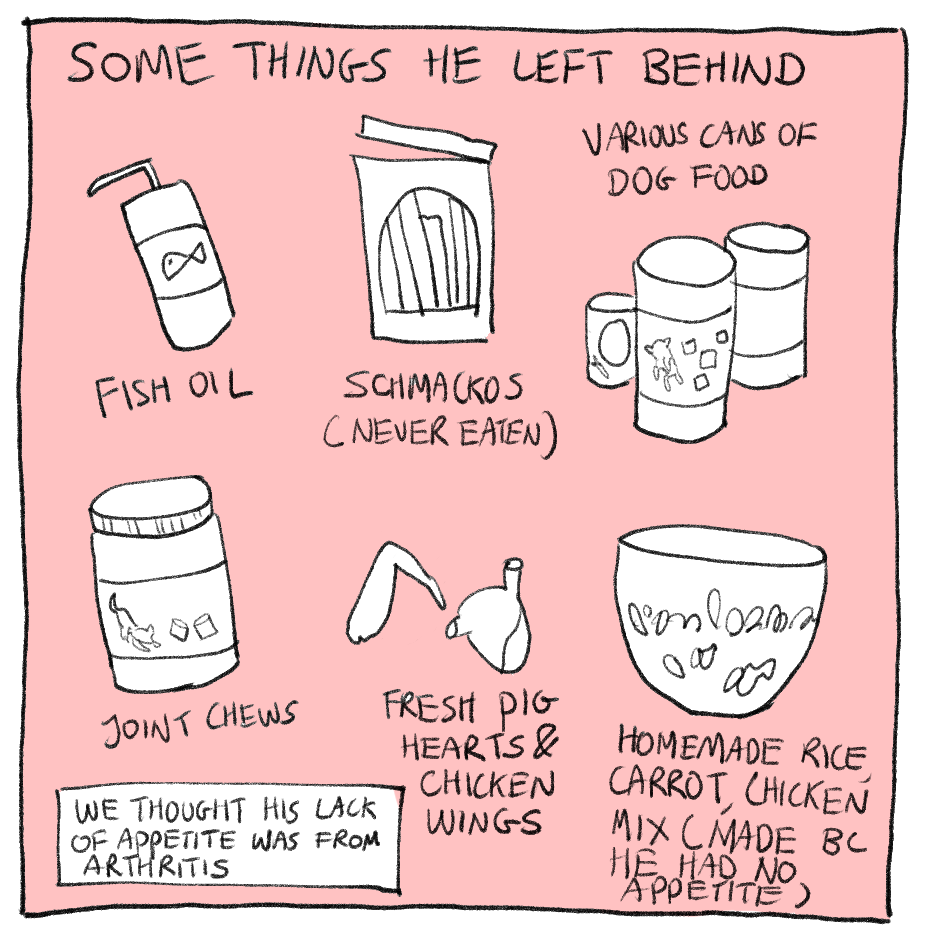 SOME THINGS HE LEFT BEHIND
FISH OIL
SCHMACKOS
(NEVER EATEN)
VARIOUS CANS OF
DOG FOOD
JOINT CHEWS
FRESH PIG
HEARTS &
CHICKEN
WINGS
HOMEMADE RICE,
CARROT, CHICKEN
MIX (MADE BC
HE HAD NO
APPETITE)
WE THOUGHT HIS LACK
OF APPETITE WAS FROM
ARTHRITIS